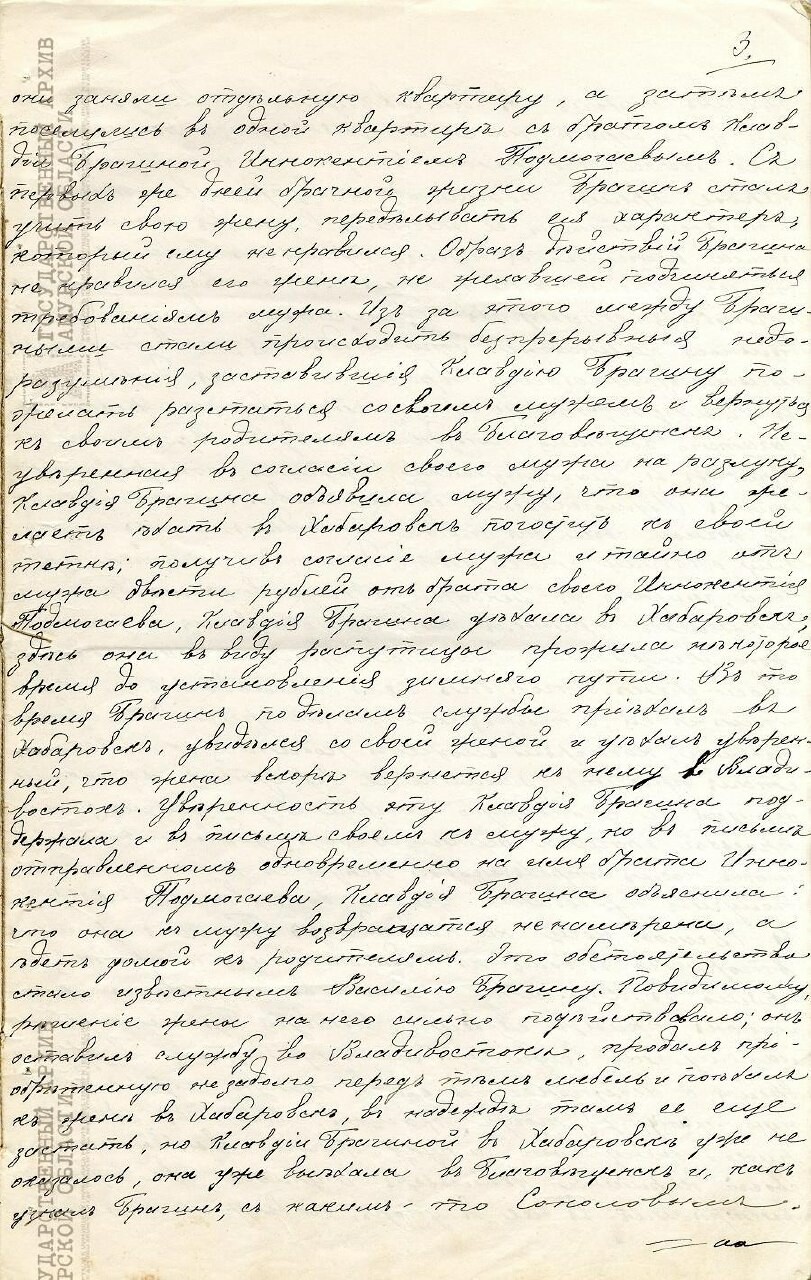 3.
они заняли отдѣльную квартиру, а затѣмъ
поселились въ одной квартирѣ съ братомъ Клав-
діи Брагиной, Иннокентіемъ Подмогаевымъ. Съ
первыхъ же дней брачной жизни Брагинъ сталъ
учить свою жену, передѣлывать ея характеръ,
который ему не нравился. Образъ дѣйствій Брагина
не нравился его женѣ, не желавшей подчиняться
требованіямъ мужа. Изъ за этого между Браги-
ными стали происходить безпрерывныя недо-
разумѣнія, заставившія Клавдію Брагину по-
желать разстаться со своимъ мужемъ и вернуться
къ своимъ родителямъ въ Благовѣщенскъ. Не-
увѣренная въ согласіи своего мужа на разлуку,
Клавдія Брагина объявила мужу, что она же
лаетъ ѣхать въ Хабаровскъ погостить къ своей
теткѣ; получивъ согласіе мужа и тайно отъ
мужа двѣсти рублей отъ брата своего Иннокентія
Подмогаева, Клавдія Брагина уѣхала въ Хабаровскъ,
здѣсь она въ виду распутицы прожила нѣкоторое
время до установленія зимняго пути. Въ то
время Брагинъ по дѣламъ службы пріѣхалъ въ
Хабаровскъ, увидѣлся со своей женой и уѣхалъ увѣрен-
ный, что жена вскорѣ вернется къ нему в Влади-
востокъ. Увѣренность эту Клавдія Брагина под-
держала и въ письмѣ своемъ къ мужу, но въ письмѣ
отправленномъ одновременно на имя брата Инно-
кентія Подмогаева, Клавдія Брагина объяснила:
что она къ мужу возвращатся не намѣрена, а
ѣдетъ домой къ родителямъ. Это обстоятельство
стало извѣстнымъ Василію Брагину. Повидимому,
рѣшеніе жены на него сильно подѣйствовало; онъ
оставилъ службу во Владивостокѣ, продалъ прі-
обрѣтенную не задолго передъ тѣмъ мебель и поѣхалъ
къ женѣ въ Хабаровскъ, въ надеждѣ тамъ ее еще
застать, но Клавдіи Брагиной въ Хабаровскѣ уже не
оказалось, она уже выѣхала въ Благовѣщенскъ и, какъ
узналъ Брагинъ, съ какимъ-то Соколовымъ.
ГОСУДАРСТВЕННЫЙ АРХИВ
АМУРСКОЙ ОБЛАСТИ